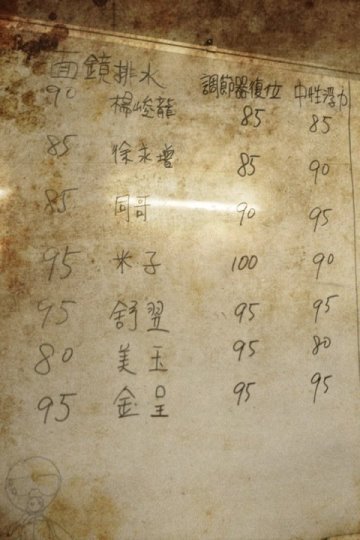 面鏡排水 調節器復位 中性浮力
90 楊峻龍 85 85
85 徐永增 85 90
85 同哥 90 95
95 米子 100 90
95 舒翌 95 95
80 美玉 95 80
95 金呈 95 95